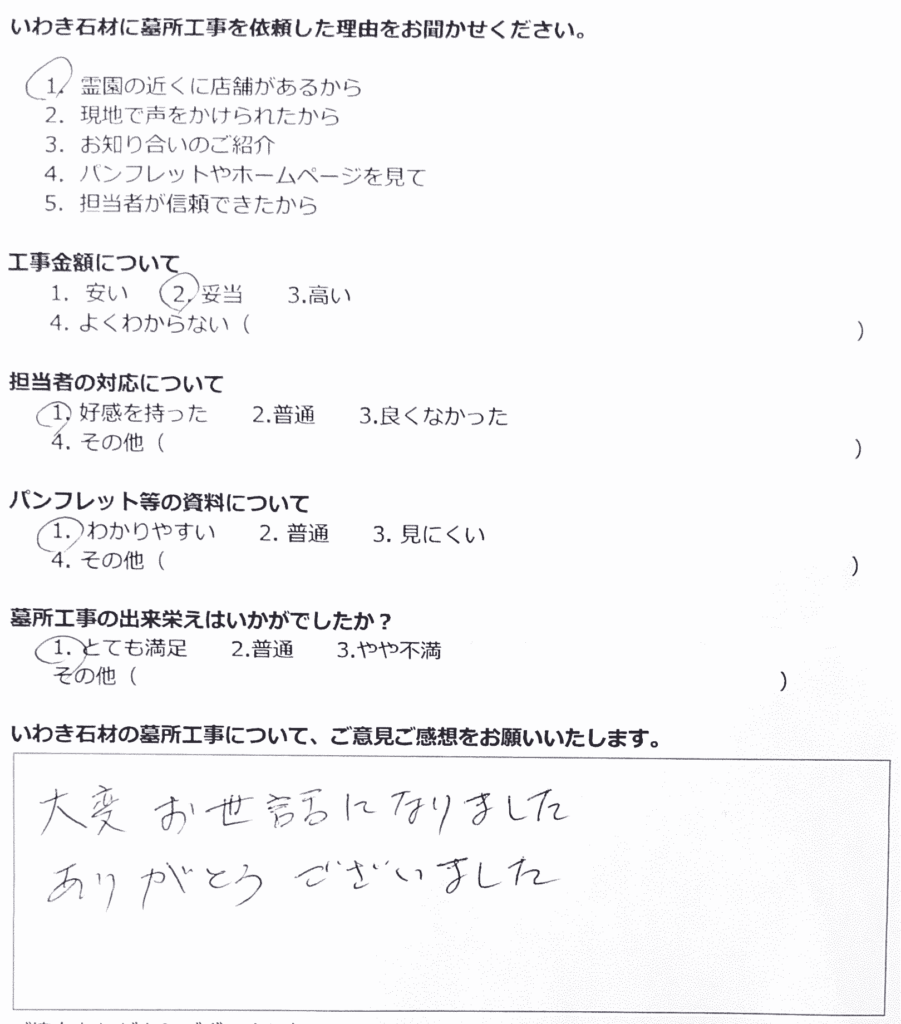 いわき石材に墓所工事を依頼した理由をお聞かせください。
1. 霊園の近くに店舗があるから
2. 現地で声をかけられたから
3. お知り合いのご紹介
4. パンフレットやホームページを見て
5. 担当者が信頼できたから
工事金額について
1. 安い 2. 妥当 3.高い
4. よくわからない（ ）
担当者の対応について
1. 好感を持った 2.普通 3.良くなかった
4. その他（ ）
パンフレット等の資料について
1. わかりやすい 2. 普通 3. 見にくい
4. その他（ ）
墓所工事の出来栄えはいかがでしたか？
1. とても満足 2.普通 3.やや不満
その他（ ）
いわき石材の墓所工事について、ご意見ご感想をお願いいたします。
大変 お世話になりました
ありがとうございました